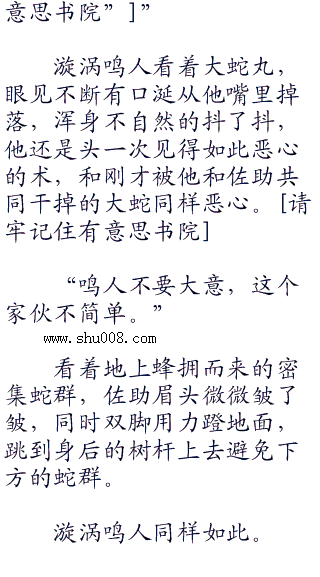 意思书院”]”
漩涡鸣人看着大蛇丸，
眼见不断有口涎从他嘴里掉
落，浑身不自然的抖了抖，
他还是头一次见得如此恶心
的术，和刚才被他和佐助共
同干掉的大蛇同样恶心。[请
牢记住有意思书院]
“鸣人不要大意，这个
家伙不简单。”
www.shu008.com
看着地上蜂拥而来的密
集蛇群，佐助眉头微微皱了
皱，同时双脚用力蹬地面，
跳到身后的树杆上去避免下
方的蛇群。
漩涡鸣人同样如此。